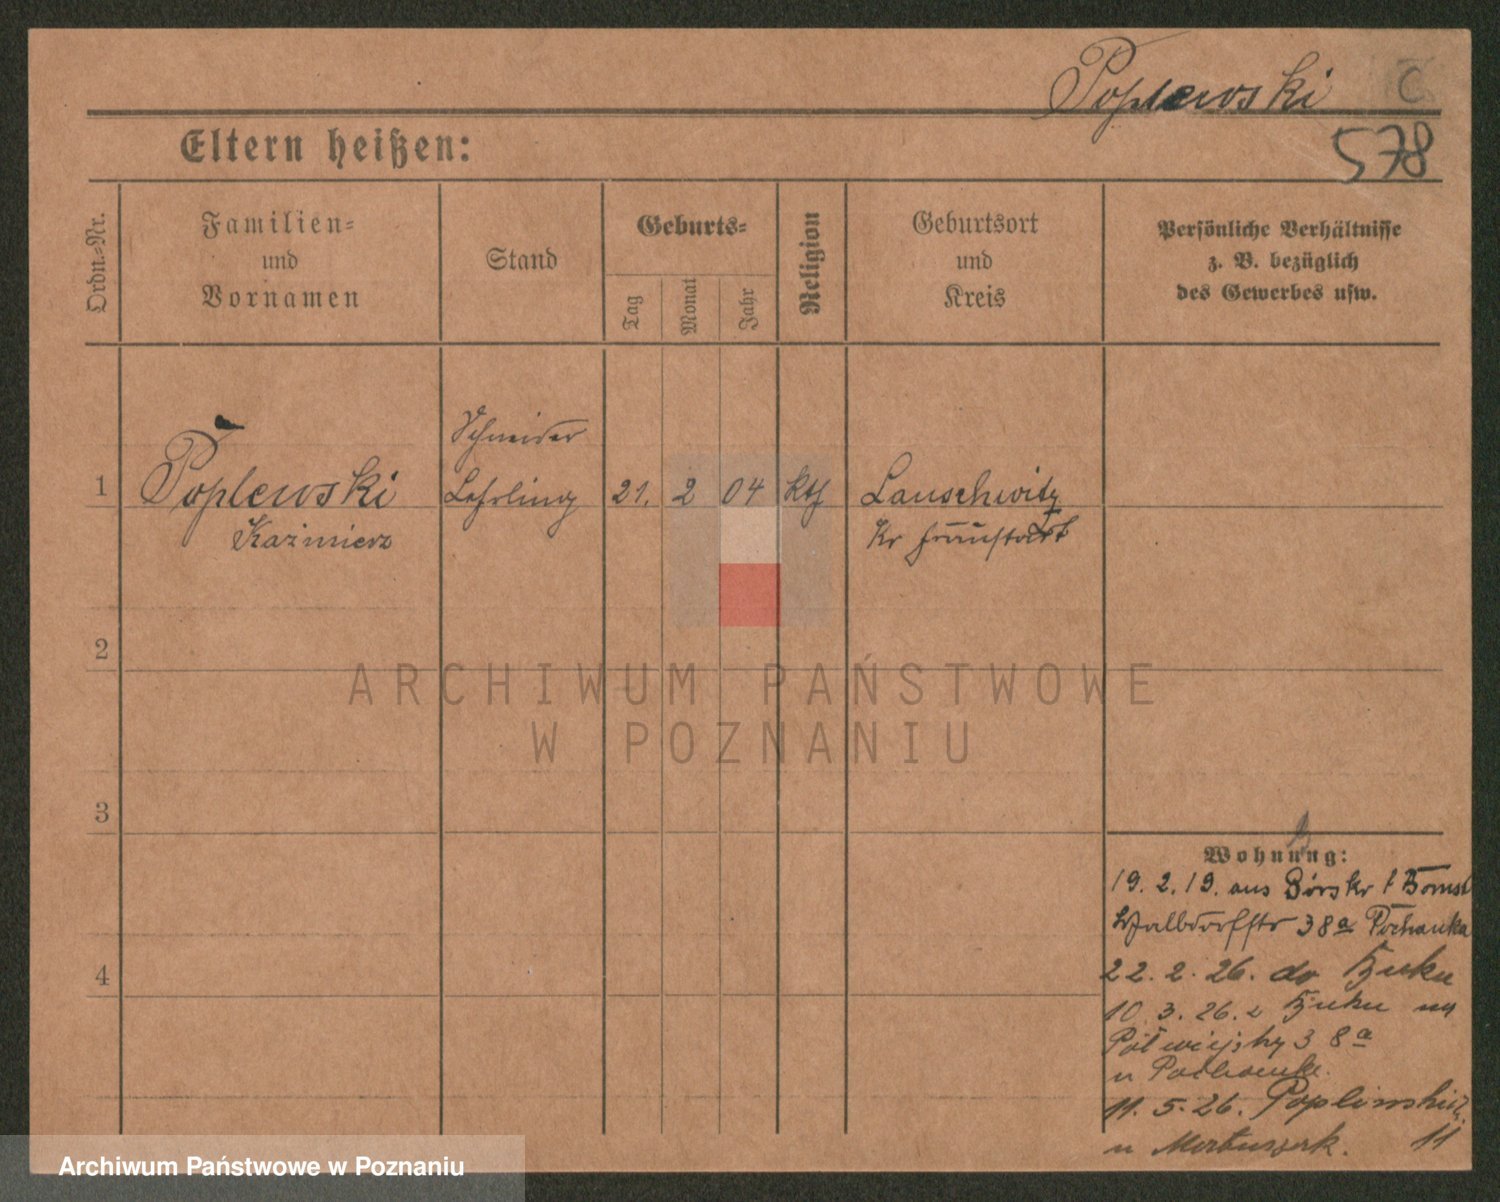 Poplewski C
578
Eltern heißen:
Ordn.-Nr.
Familien-
und
Vornamen
Stand
Geburts-
Tag
Monat
Jahr
Religion
Geburtsort
und
Kreis
Persönliche Verhältnisse
z. B. bezüglich
des Gewerbes usw.
Schneider
1 Poplewski Lehrling 21. 2 04 kth Lauschwitz
Kazimierz Kr Fraustadt
2
ARCHIWUM PAŃSTWOWE
W POZNANIU
3
Wohnung:
19. 2. 19. aus
38a
22. 2. 26. do Buku
10. 3. 26. z Buku na
Półwiejsky 38a
u
11. 5. 26.
u 11
4
Archiwum Państwowe w Poznaniu